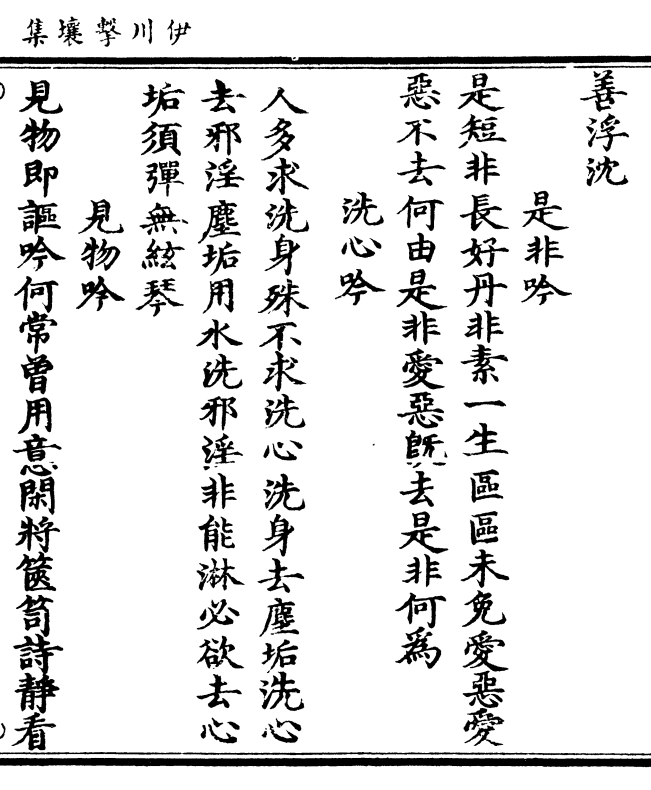 伊川擊壤集
善浮沈
是非吟
是短非長好丹非素一生區區未免愛惡愛
惡不去何由是非愛惡旣去是非何爲
洗心吟
人多求洗身殊不求洗心洗身去塵垢洗心
去邪淫塵垢用水洗邪淫非能淋必欲去心
垢須彈無絃琴
見物吟
見物即謳吟何常曾用意閑將篋笥詩靜看